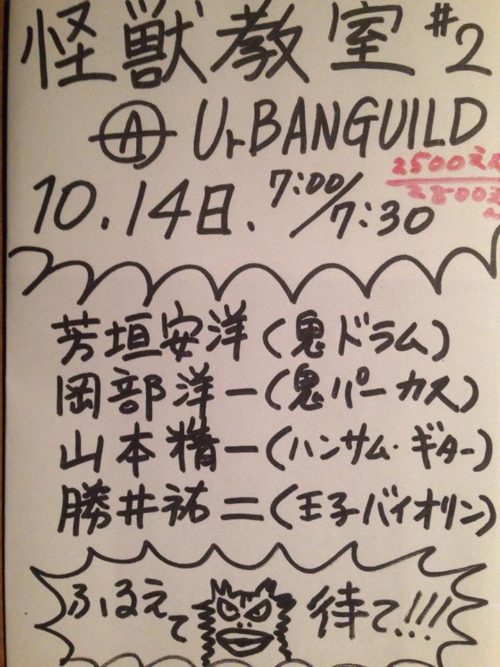 怪獣教室 #2
Ⓐ UrBANGUILD
10.14日. 7:00/7:30
2500
2800
芳垣安洋(鬼ドラム)
岡部洋一(鬼パーカス)
山本精一(ハンサム・ギター)
勝井祐二(王子バイオリン)
ふるえて待て!!!